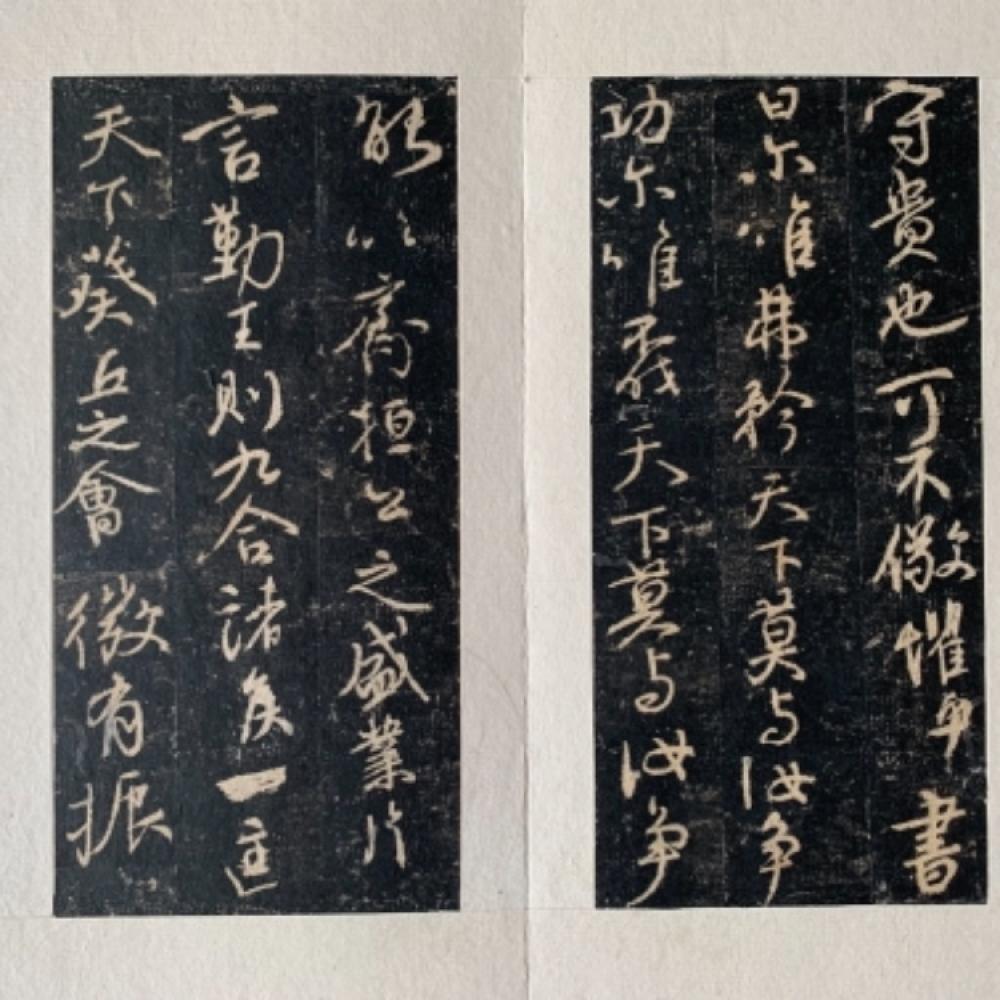 守貴也可不儆懼乎書
曰尔惟弗矜天下莫与汝争
功尔惟不伐天下莫与汝争
能以齊桓公之盛業片
言勤王則九合諸侯一匡
天下葵丘之會微有振